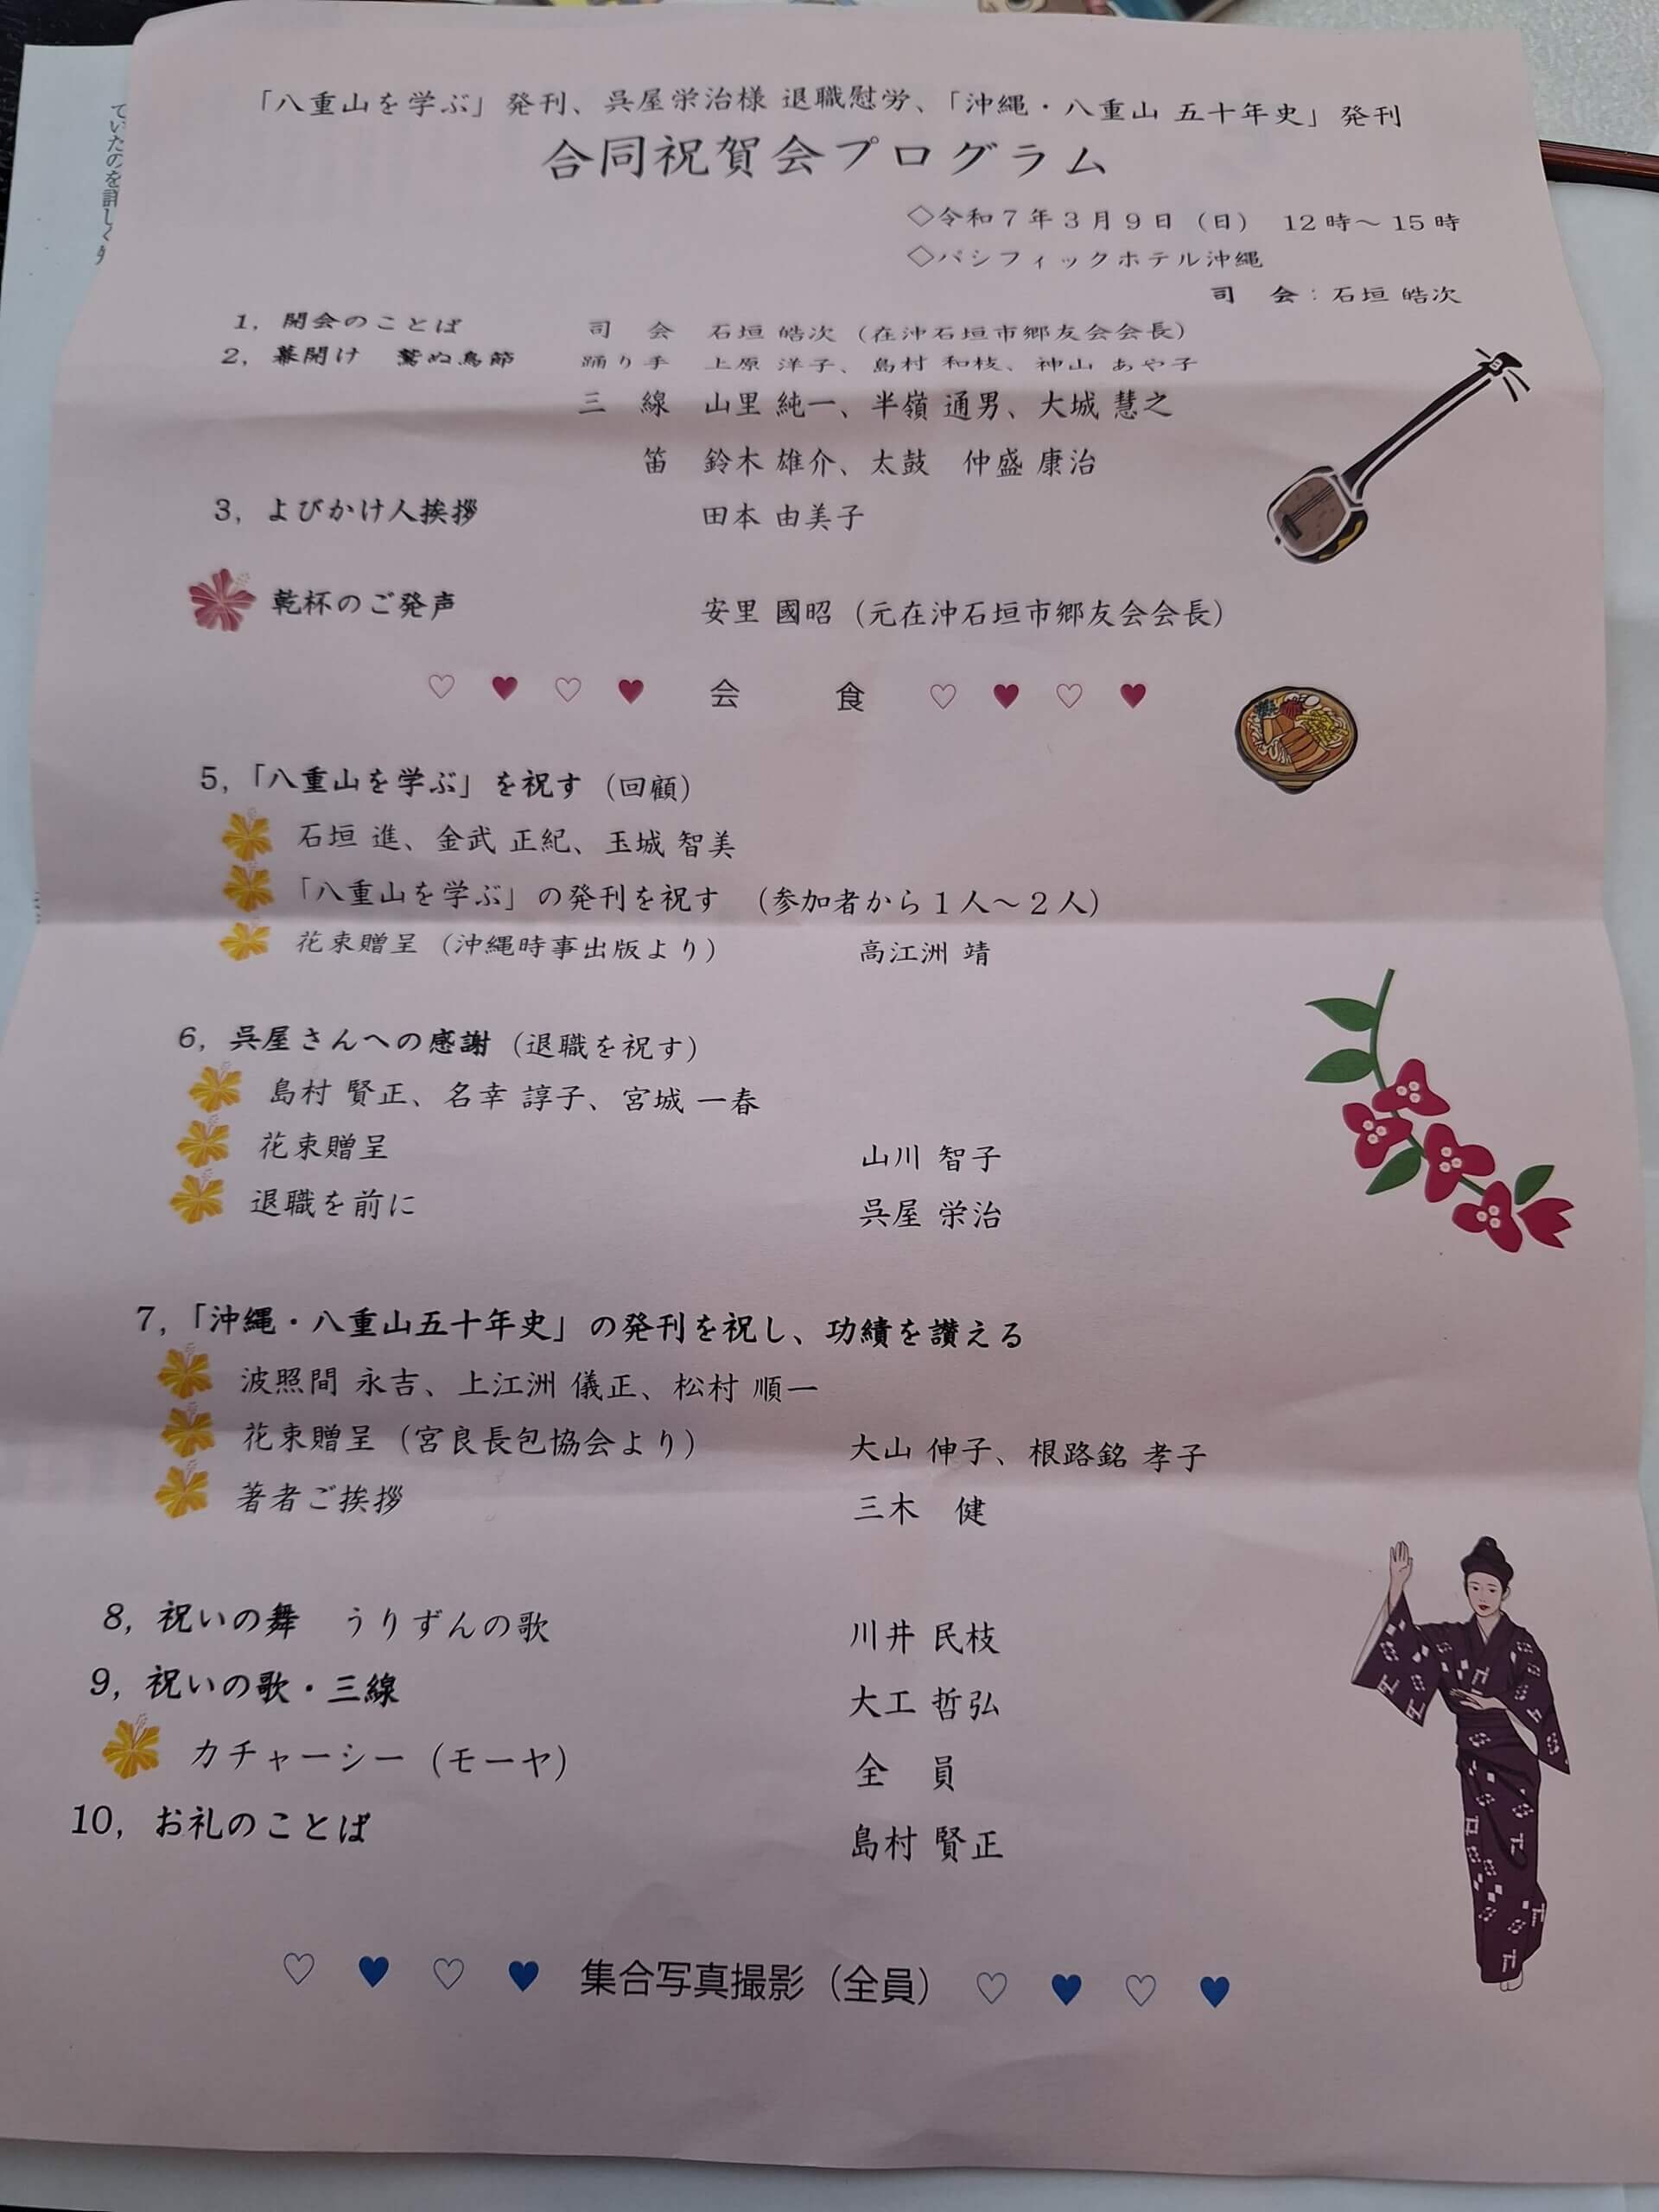 「八重山を学ぶ」発刊、呉屋栄治様 退職慰労、「沖縄・八重山 五十年史」発刊
合同祝賀会プログラム
◇令和7年3月9日(日) 12時～15時
◇パシフィックホテル沖縄
司 会:石垣 皓次
1, 開会のことば 司 会 石垣 皓次(在沖石垣市郷友会会長)
2, 幕開け 鷲ぬ鳥節 踊り手 上原 洋子、島村 和枝、神山 あや子
三 線 山里 純一、半嶺 通男、大城 慧之
笛 鈴木 雄介、太鼓 仲盛 康治
3, よびかけ人挨拶 田本 由美子
乾杯のご発声 安里 國昭(元在沖石垣市郷友会会長)
♡ ♥ ♡ ♥ 会 食 ♡ ♥ ♡ ♥
5,「八重山を学ぶ」を祝す(回顧)
石垣 進、金武 正紀、玉城 智美
「八重山を学ぶ」の発刊を祝す (参加者から1人～2人)
花束贈呈(沖縄時事出版より) 高江洲 靖
6, 呉屋さんへの感謝(退職を祝す)
島村 賢正、名幸 諄子、宮城 一春
花束贈呈 山川 智子
退職を前に 呉屋 栄治
7,「沖縄・八重山五十年史」の発刊を祝し、功績を讃える
波照間 永吉、上江洲 儀正、松村 順一
花束贈呈(宮良長包協会より) 大山 伸子、根路銘 孝子
著者ご挨拶 三木 健
8, 祝いの舞 うりずんの歌 川井 民枝
9, 祝いの歌・三線 大工 哲弘
カチャーシー(モーヤ) 全 員
10, お礼のことば 島村 賢正
♡ ♥ ♡ ♥ 集合写真撮影(全員) ♡ ♥ ♡ ♥
ていたのを詳しく